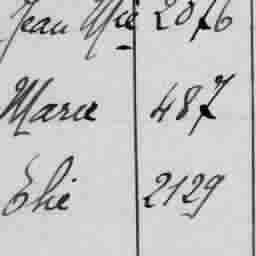 Jean Mie 2076
Marie 487
Elie 2129